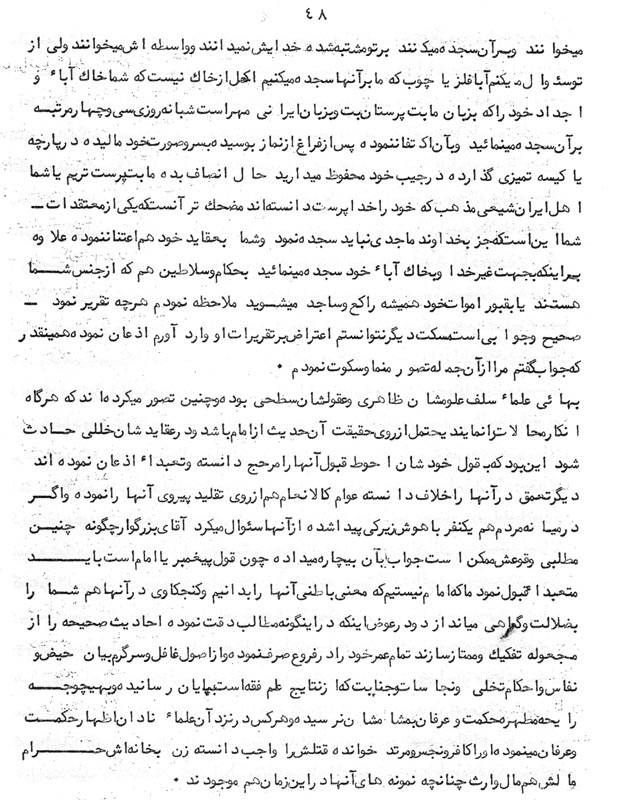 ٤٨
میخوانند وبرآن سجده میکنند برتومشتبه شده خدایش نمیدانند وواسطه اش میخوانند ولی از
توسئوال میکنم آیا فلز یا چوب که ما برآنها سجده میکنیم اکمل ازخاک نیست که شما خاک آباء و
اجداد خود را که بزبان ما بت پرستان بت وبزبان ایرانی مهر است شبانه روزی سی وچهار مرتبه
برآن سجده مینمائید وبآن اکتفا ننموده پس از فراغ از نماز بوسیده بسر وصورت خود مالیده در پارچه
یا کیسه تمیزی گذارده در جیب خود محفوظ میدارید حال انصاف بده ما بت پرست تریم یا شما
اهل ایران شیعی مذهب که خود را خدا پرست دانسته اند مضحک تر آنستکه یکی از معتقدات ــ
شما این است که جز بخداوند ماجدی نباید سجده نمود وشما بعقاید خود هم اعتنا ننموده علاوه
براینکه بجهت غیر خدا وبخاک آباء خود سجده مینمائید بحکام وسلاطین هم که ازجنس شما
هستند یا بقبور اموات خود همیشه راکع وساجد میشوید ملاحظه نمودم هرچه تقریر نمود ــ
صحیح وجوابی است مسکت دیگر نتوانستم اعتراض بر تقریرات او وارد آورم اذعان نموده همینقدر
که جواب گفتم مرا از آن جمله تصور منما وسکوت نمودم ۰
بهائی علماء سلف علومشان ظاهری وعقولشان سطحی بوده وچنین تصور میکرده اند که هرگاه
انکار محالات را نمایند یحتمل از روی حقیقت آن حدیث از امام باشد ودر عقاید شان خللی حادث
شود این بود که بقول خودشان احوط قبول آنها را مرجح دانسته وتعبداً اذعان نموده اند
دیگر تعمق در آنها را خلاف دانسته عوام کالانعام هم از روی تقلید پیروی آنها را نموده واگر
در میانه مردم هم یکنفر با هوش زیرکی پیدا شده از آنها سئوال میکرد آقای بزرگوار چگونه چنین
مطلبی وقوعش ممکن است جواب بآن بیچاره میداده چون قول پیغمبر یا امام است باید
متعبداً قبول نمود ما که امام نیستیم که معنی باطنی آنها را بدانیم وکنجکاوی در آنها هم شما را
بضلالت وگمراهی میاندازد ودر عوض اینکه در اینگونه مطالب دقت نموده احادیث صحیحه را از
مجعوله تفکیک وممتاز سازند تمام عمر خود را در فروع صرف نموده واز اصول غافل وسرگرم بیان حیض و
نفاس واحکام تخلی ونجاسات وجنایت که از نتایج علم فقه است بپایان رسانیده وبهیچوجه
رایحه مطهره حکمت وعرفان بمشامشان نرسیده وهرکس در نزد آن علماء نادان اظهار حکمت
وعرفان مینموده اورا کافر ونجس ومرتد خوانده قتلش را واجب دانسته زن بخانه اش حرام
مالش هم مال وارث چنانچه نمونه های آنها در این زمان هم موجودند ۰